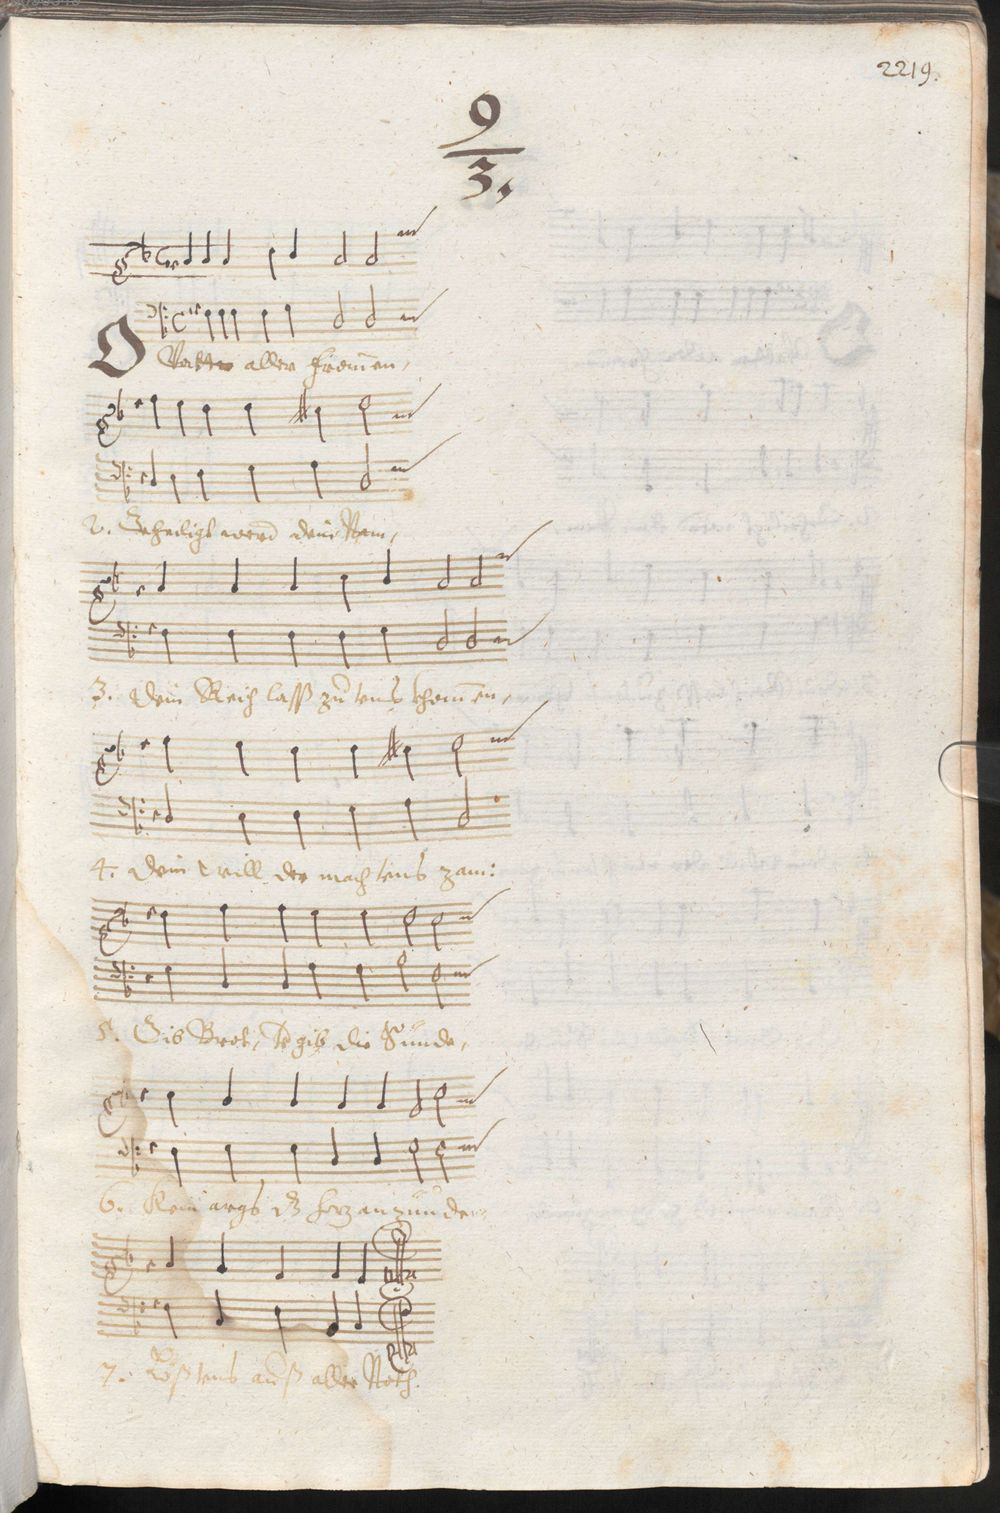 2219.
9
3.
O Vatter aller fromen,
2. Geheiligt werd dein Nam,
3. Dein Reich lass zu uns khomen,
4. Dein will der mach uns zam:
5. Gib Brot, gib die Sünde,
6. Kein args dz herz anzünder
7. Löß uns auß aller Noth.